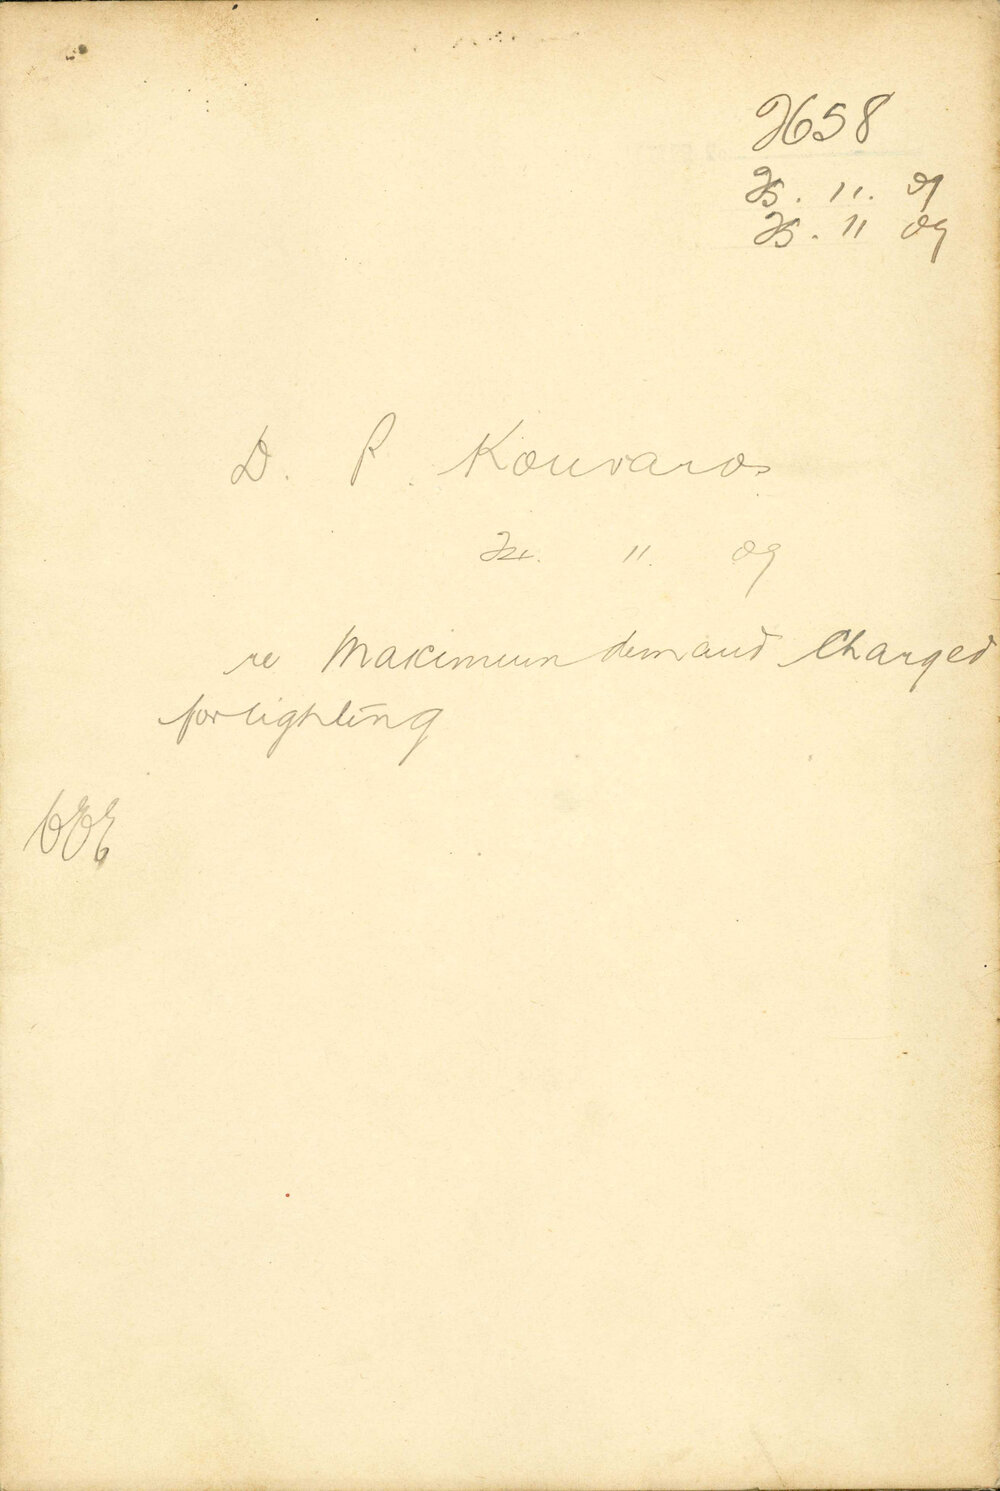 2658
25. 11. 09
25. 11 09
D. P. Kouvaros
24. 11. 09
re Maximum demand Charged
for lighting